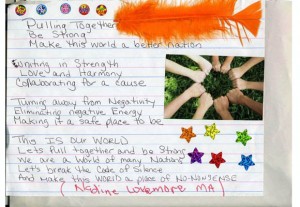 Pulling Together
Be Strong
Make this world a better nation
Uniting in Strength
Love and Harmony
Collaborating for a cause
Turning away from Negativity
Eliminating negative Energy
Making it a safe place to be
This IS OUR WORLD
Lets Pull together and be Strong
We are a World of many Nations
Let's break the Code of Silence
And make this WORLD a place of NO-NONSENSE
Nadine Lovemore MA